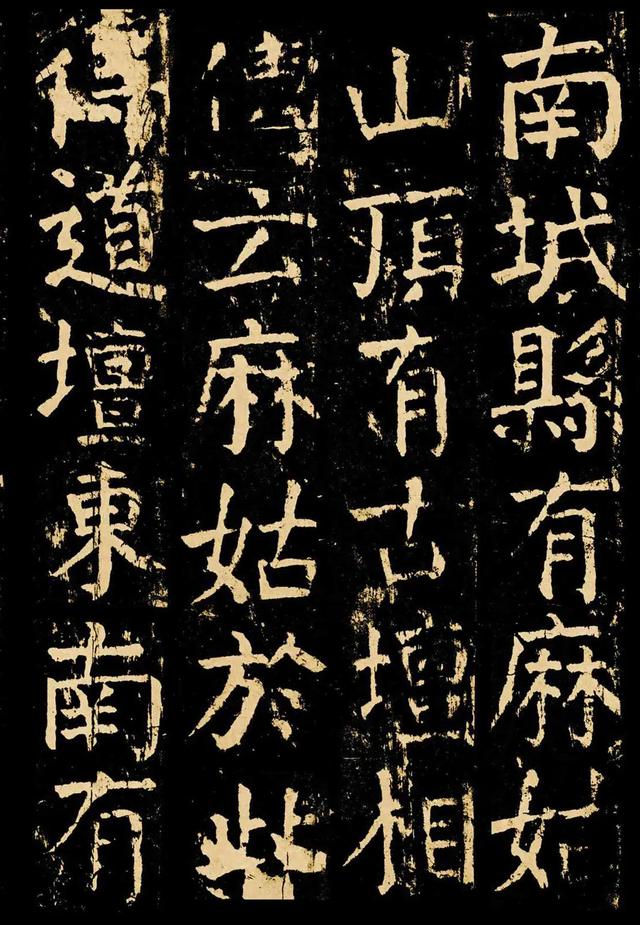 南城縣有麻姑
山頂有古壇相
傳云麻姑於此
得道壇東南有